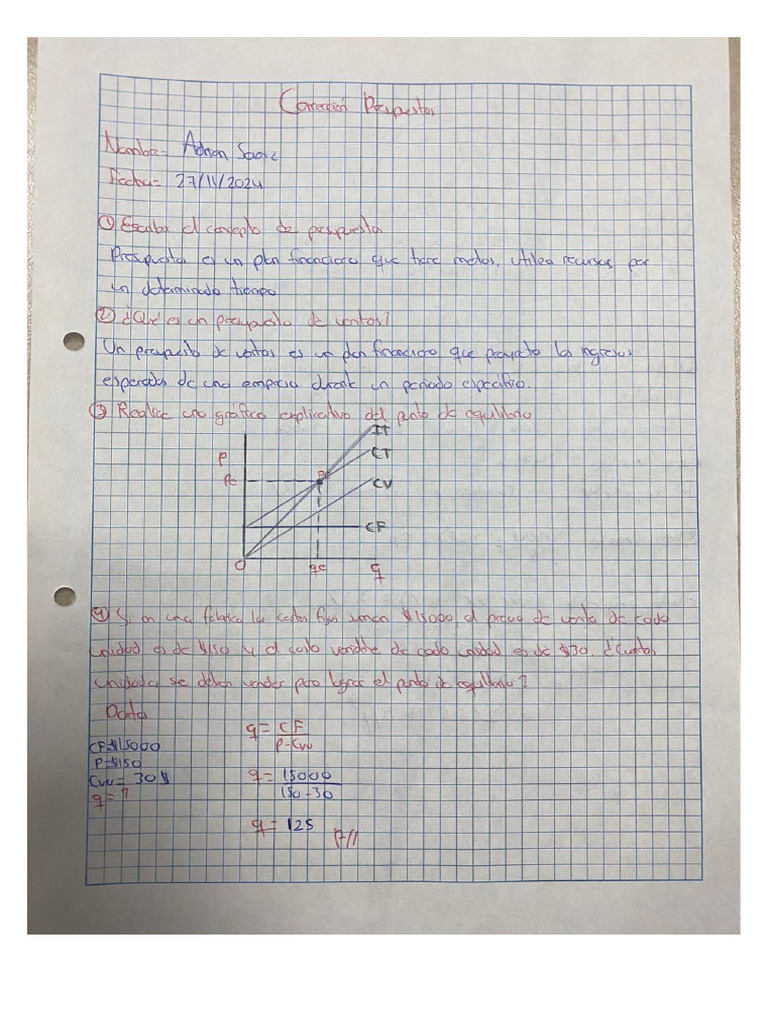 Corrección Presupuestos
Nombre= Adrian
Fecha= 27/11/2024
① Escribir el concepto de presupuesto
Presupuesto es un plan financiero que tiene metas, utiliza recursos por
un determinado tiempo
② ¿Qué es un presupuesto de ventas?
Un presupuesto de ventas es un plan financiero que proyecta los ingresos
esperados de una empresa durante un periodo específico.
③ Realice una gráfica explicativa del punto de equilibrio
IT
P
CT
Pe
CV
CF
O
qe
q
④ Si en una fábrica los costos fijos suman $15000, el precio de venta de cada
unidad es de $150 y el costo variable de cada unidad es de $30. ¿Cuántas
unidades se deben vender para lograr el punto de equilibrio?
Datos
CF=$15000
P=$150
Cvu= 30$
q= ?
q= CF
P-Cvu
q= 15000
150-30
q= 125
R//